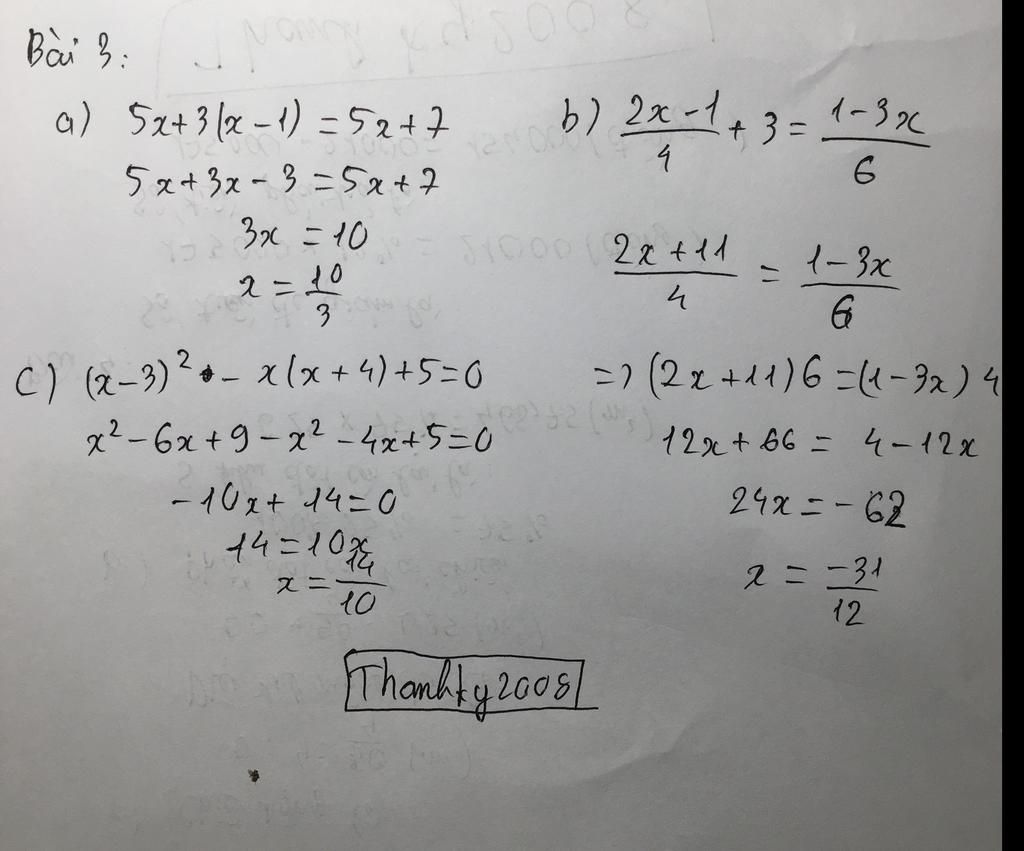 Bài 3:
a) 5x+3(x-1) = 5x+7
5x+3x-3 = 5x+7
3x = 10
x = 10/3
b) (2x-1)/4 + 3 = (1-3x)/6
(2x+11)/4 = (1-3x)/6
=> (2x+11)6 = (1-3x)4
12x+66 = 4-12x
24x = -62
x = -31/12
c) (x-3)² - x(x+4)+5=0
x²-6x+9-x²-4x+5=0
-10x+14=0
14=10x
x = 14/10
Thanhky2008